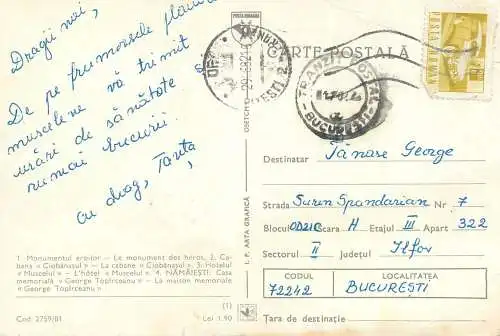 Dragii mei,
De pe frumoasele plaiuri
muscelene vă trimit
urări de sănătate
numai bucurii.
cu drag, Tanța
1 Monumentul eroilor — Le monument des héros. 2. Ca-
bana «Ciobănașul» — La cabane «Ciobănașul». 3. Hotelul
«Muscelul» — L'hôtel «Muscelul». 4. NĂMĂIEȘTI: Casa
memorială «George Topîrceanu» — La maison mémoriale
«George Topîrceanu»
(1)
Cod 2759/81
Lei 1,90
I. P. ARTA GRAFICĂ
POȘTA ROMÂNĂ
CARTE POȘTALĂ
TRANZIT POSTAL
BUCUREȘTI
Destinatar Tănase George
Strada Suren Spandarian Nr 7
Blocul OD21C Scara H Etajul III Apart 322
Sectorul II Județul Ilfov
CODUL LOCALITATEA
72242 BUCUREȘTI
Țara de destinație